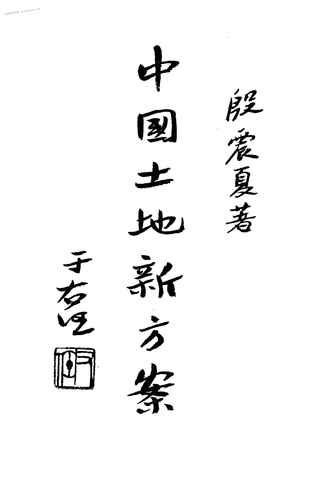 殷震夏著
中國土地新方案
于右任